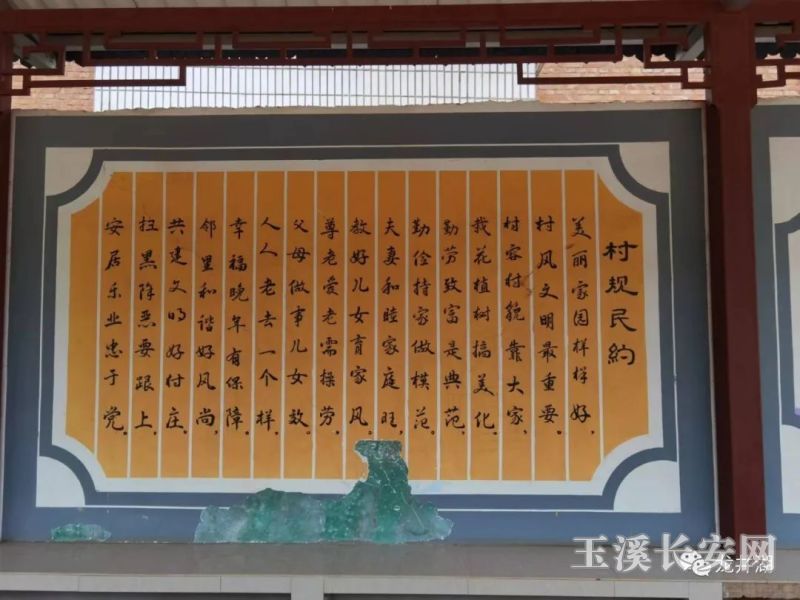 村规民约
美丽家园样样好，
村风文明最重要。
村容村貌靠大家，
栽花植树搞美化。
勤劳致富是典范，
勤俭持家做模范。
夫妻和睦家庭旺，
教好儿女育家风。
尊老爱老需操劳，
父母做事儿女效。
人人老去一个样，
幸福晚年有保障。
邻里和谐好风尚，
共建文明好付庄。
扫黑除恶要跟上，
安居乐业忠于党。
玉溪长安网
龙井湖